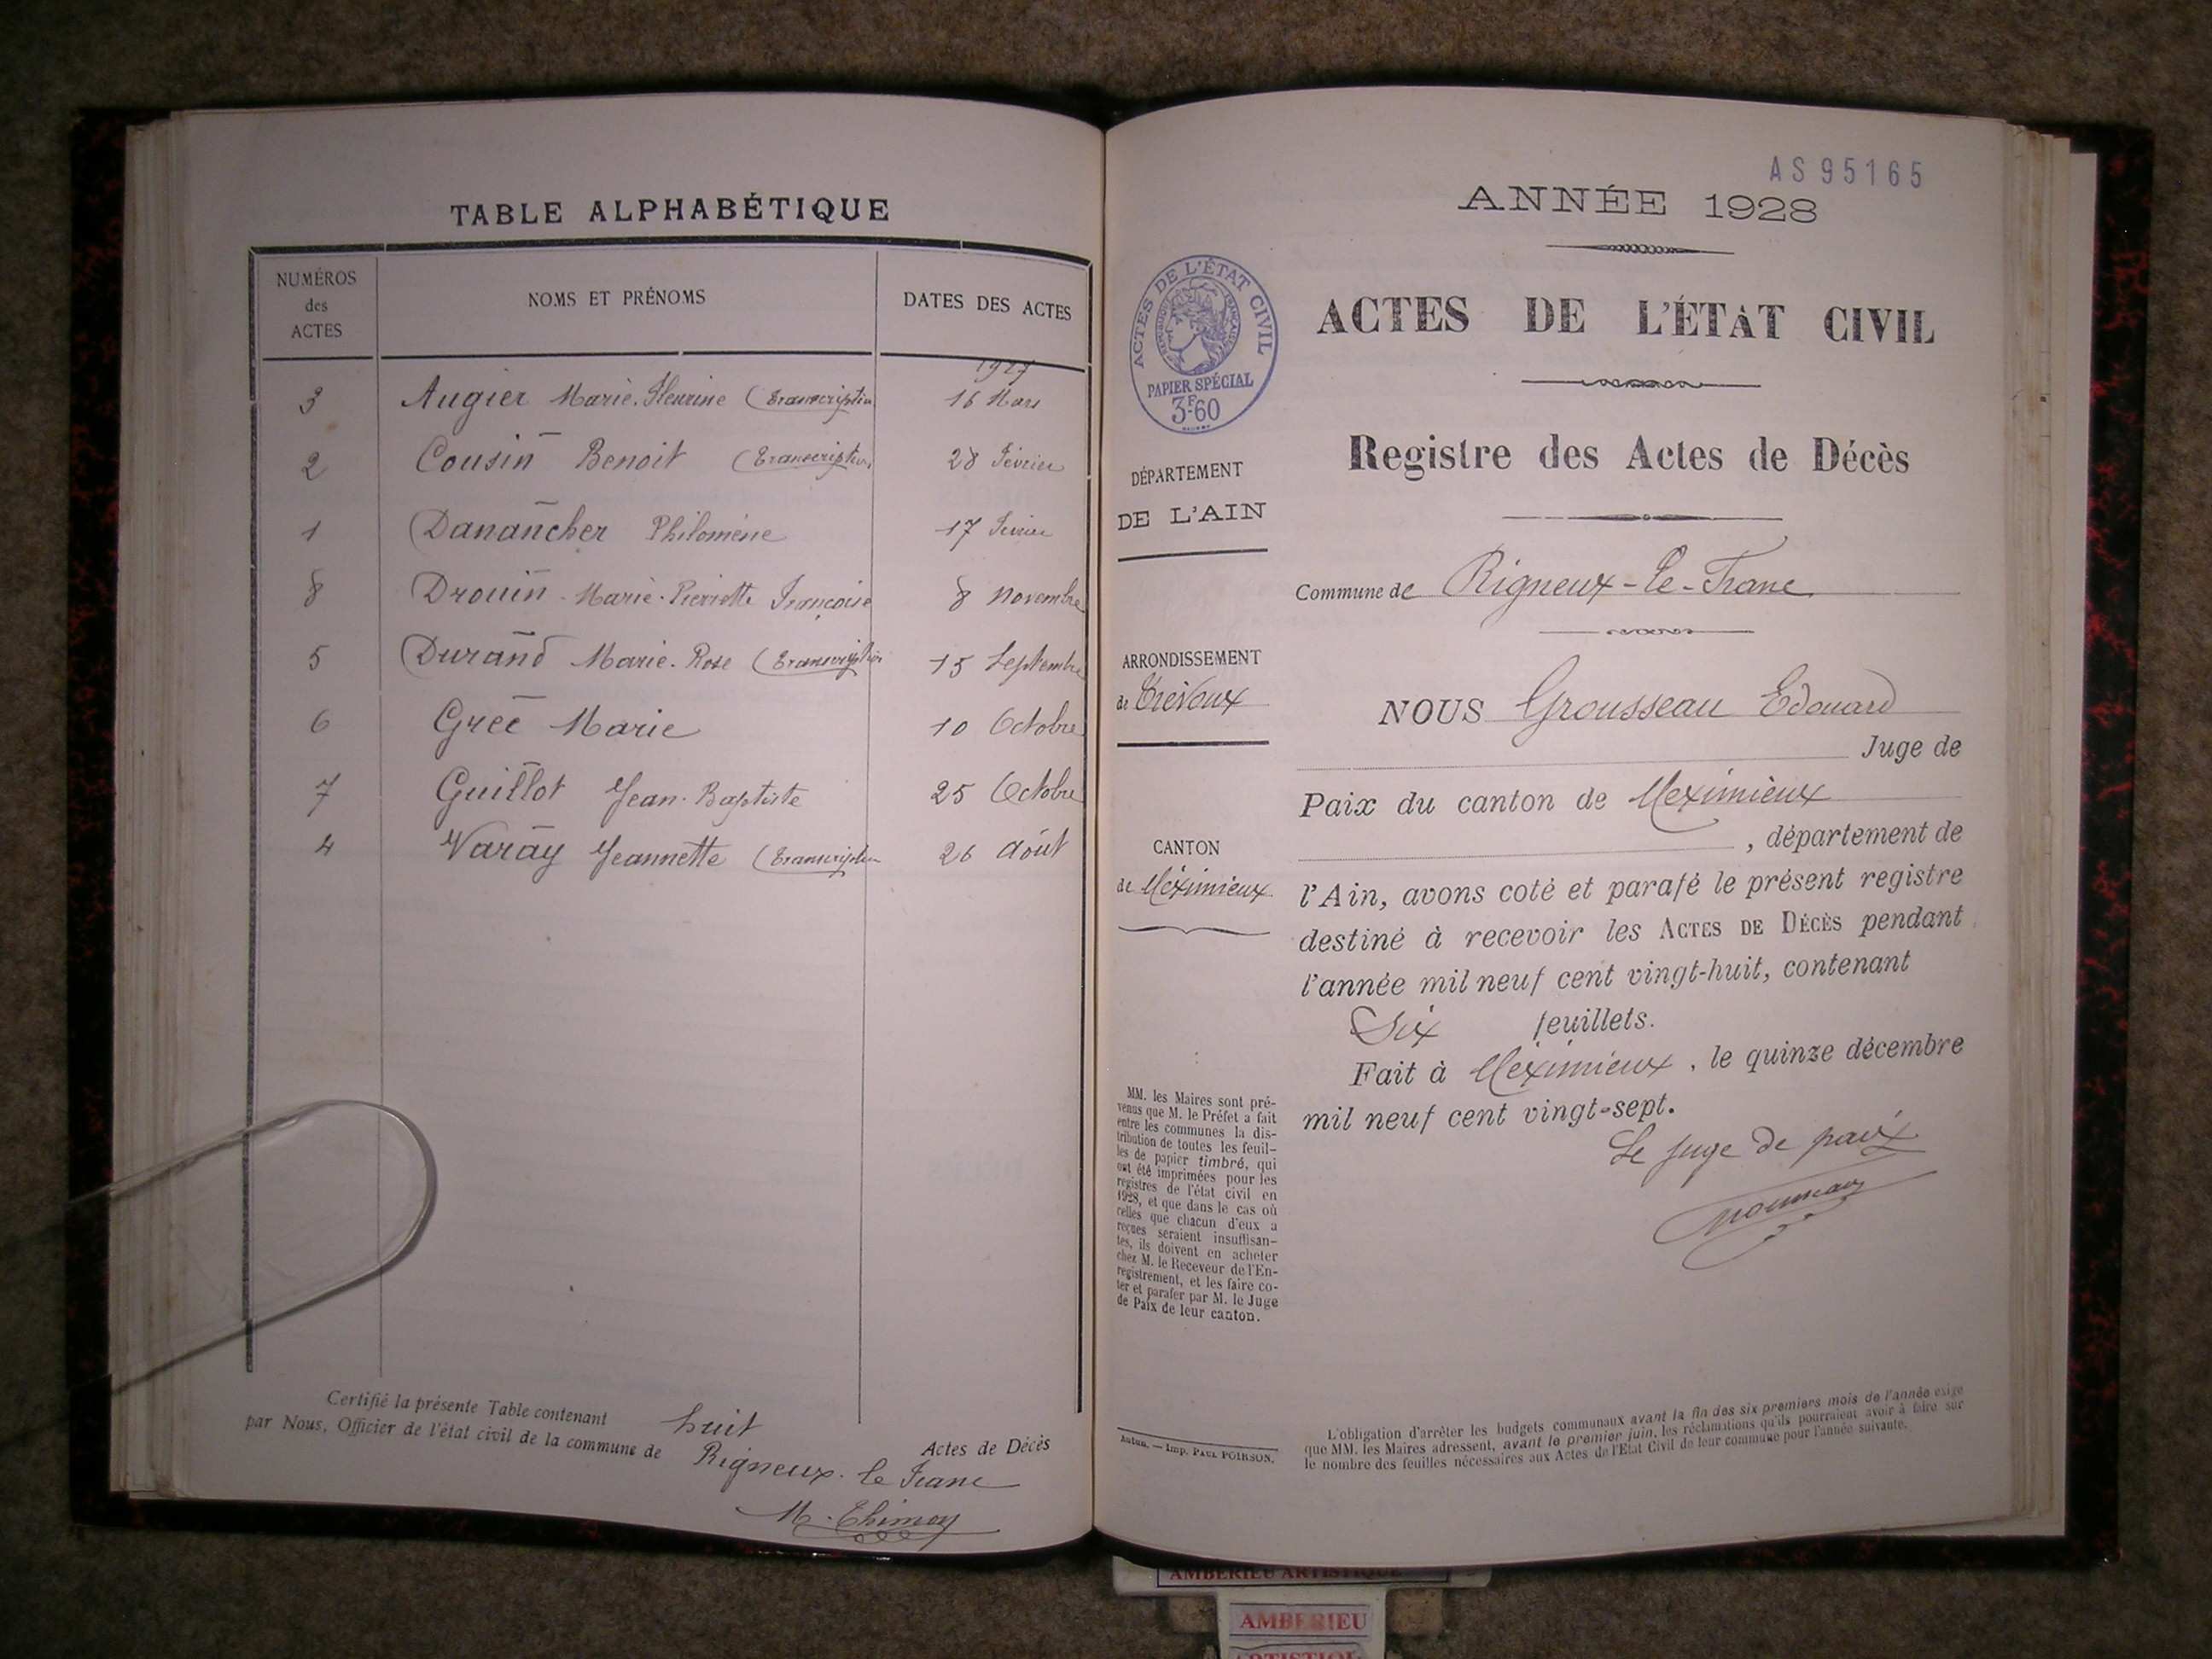 TABLE ALPHABÉTIQUE
NUMÉROS des ACTES NOMS ET PRÉNOMS DATES DES ACTES
1927
3 Augier Marie-Fleurine (Transcription 16 Mars
2 Cousin Benoit (Transcription) 28 Février
1 Danancher Philomène 17 Février
8 Drouin Marie-Pierrette Françoise 8 Novembre
5 Durand Marie-Rose (Transcription 15 Septembre
6 Grec Marie 10 Octobre
7 Guillot Jean-Baptiste 25 Octobre
4 Varay Jeannette (Transcription 26 Août
Certifié la présente Table contenant huit Actes de Décès
par Nous, Officier de l'état civil de la commune de Rigneux-le-Franc
M. Thimon
AS95165
ANNÉE 1928
ACTES DE L'ÉTAT CIVIL
RÉPUBLIQUE FRANÇAISE
PAPIER SPÉCIAL
3F60
ACTES DE L'ÉTAT CIVIL
Registre des Actes de Décès
DÉPARTEMENT
DE L'AIN
Commune de Rigneux-le-Franc
ARRONDISSEMENT
de Trévoux
NOUS Grousseau Edouard
Juge de
Paix du canton de Meximieux
, département de
CANTON
de Méximieux
l'Ain, avons coté et parafé le présent registre
destiné à recevoir les ACTES DE DÉCÈS pendant
l'année mil neuf cent vingt-huit, contenant
Six feuillets.
Fait à Méximieux, le quinze décembre
mil neuf cent vingt-sept.
Le juge de paix
MM. les Maires sont pré-
venus que M. le Préfet a fait
entre les communes la dis-
tribution de toutes les feuil-
les de papier timbré, qui
ont été imprimées pour les
registres de l'état civil en
1928, et que dans le cas où
celles que chacun d'eux a
reçues seraient insuffisan-
tes, ils doivent en acheter
chez M. le Receveur de l'En-
registrement, et les faire co-
ter et parafer par M. le Juge
de Paix de leur canton.
Autun. — Imp. PAUL POIRSON.
L'obligation d'arrêter les budgets communaux avant la fin des six premiers mois de l'année exige
que MM. les Maires adressent, avant le premier juin, les réclamations qu'ils pourraient avoir à faire sur
le nombre des feuilles nécessaires aux Actes de l'Etat Civil de leur commune pour l'année suivante.
AMBERIEU ARTISTIQUE
AMBERIEU